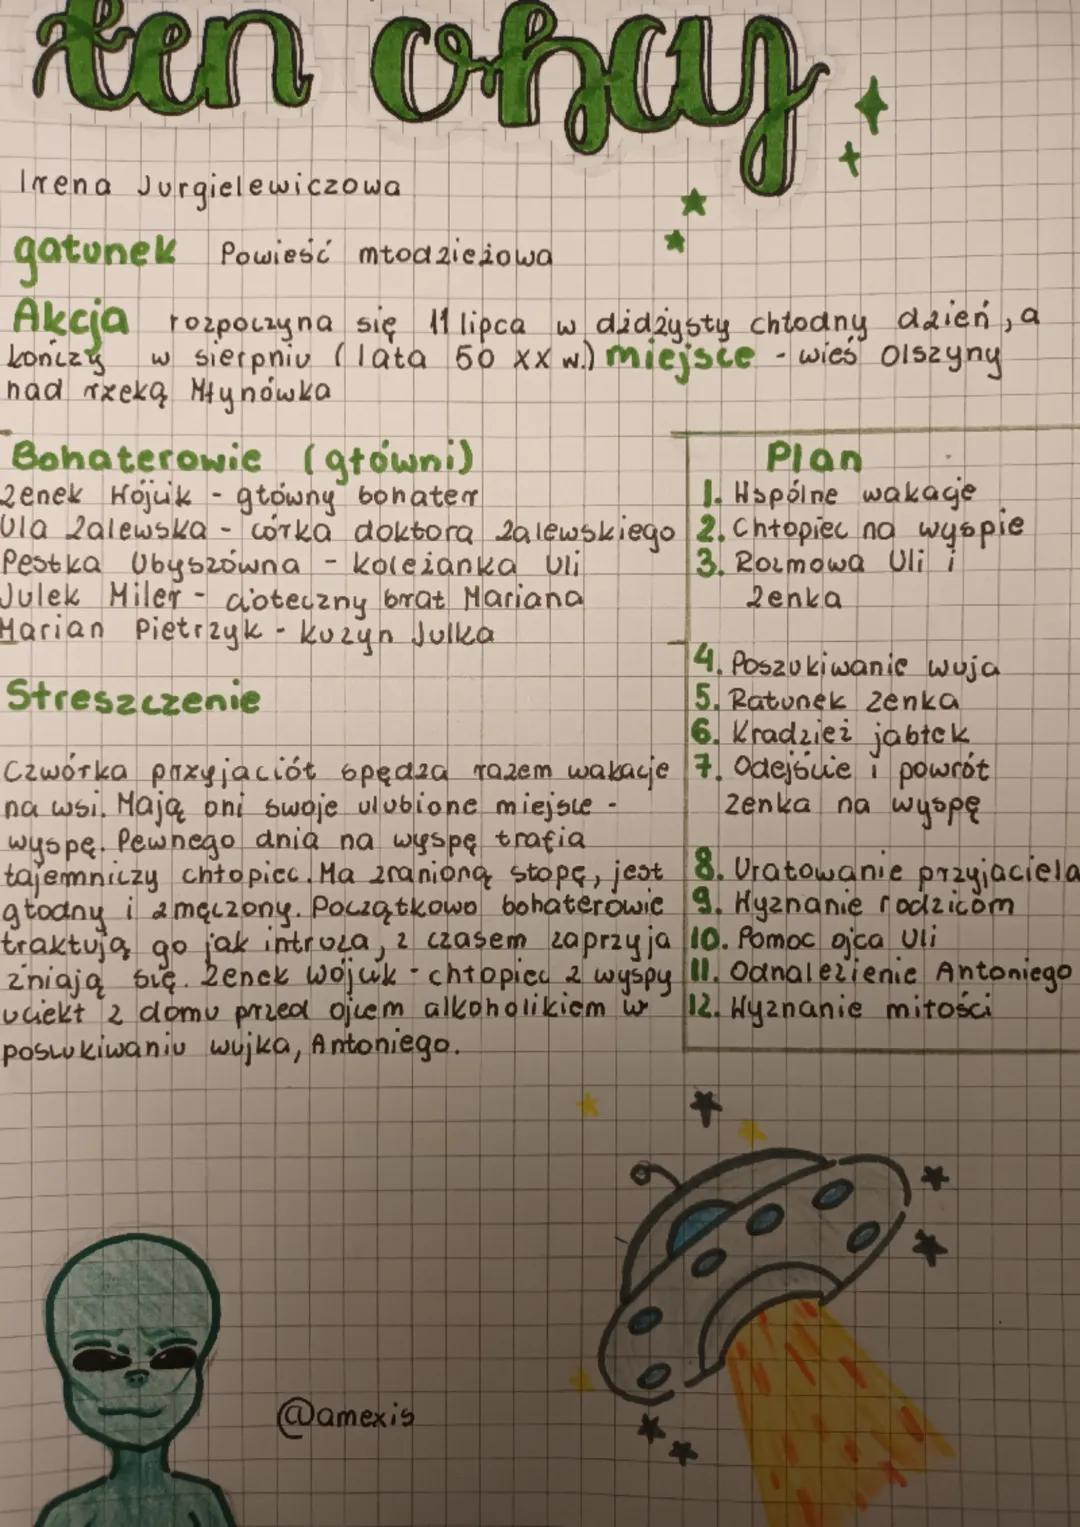 ten obcy
Irena Jurgielewiczowa
gatunek Powieść młodzieżowa
Akcja rozpoczyna się 11 lipca w dżdżysty chłodny dzień, a
kończy w sierpniu (lata 50 XX w.) miejsce - wieś Olszyny
nad rzeką Młynówka
Bohaterowie (główni)
Zenek Wójcik - główny bohater
Ula Zalewska - córka doktora Zalewskiego
Pestka Ubyszówna - koleżanka Uli
Julek Miler - cioteczny brat Mariana
Marian Pietrzyk - kuzyn Julka
Streszczenie
Czwórka przyjaciół spędza razem wakacje
na wsi. Mają oni swoje ulubione miejsce -
wyspę. Pewnego dnia na wyspę trafia
tajemniczy chłopiec. Ma zranioną stopę, jest
głodny i zmęczony. Początkowo bohaterowie
traktują go jak intruza, z czasem zaprzyja
źniają się. Zenek Wójcik - chłopiec z wyspy
uciekł z domu przed ojcem alkoholikiem w
poszukiwaniu wujka, Antoniego.
Plan
1. Wspólne wakacje
2. Chłopiec na wyspie
3. Rozmowa Uli i
Zenka
4. Poszukiwanie wuja
5. Ratunek Zenka
6. Kradzież jabłek
7. Odejście i powrót
Zenka na wyspę
8. Uratowanie przyjaciela
9. Wyznanie rodzicom
10. Pomoc ojca Uli
11. Odnalezienie Antoniego
12. Wyznanie miłości
@amexis